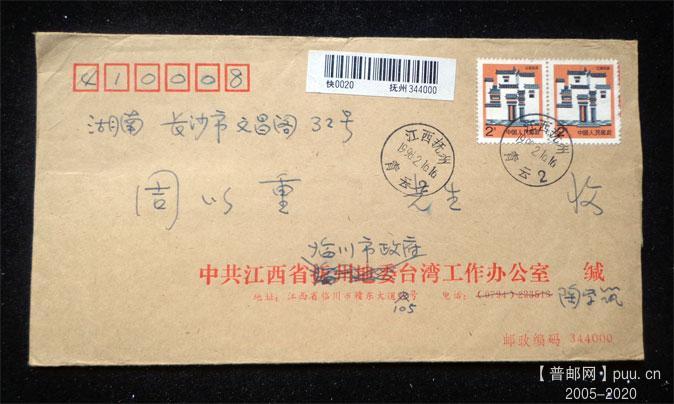 410008
快0020 抚州 344000
2元 中国人民邮政
中国人民邮政
湖南 长沙市文昌阁 32号
江西抚州
1996.2.16.16
青云
江西抚州
1996.2.16.16
青云 2
周以重 先生 收
临川市政府
中共江西省抚州地委台湾工作办公室 缄
地址:江西省临川市赣东大道 号 电话:(0794)223513
105
邮政编码 344000
【普邮网】puu.cn
2005-2020